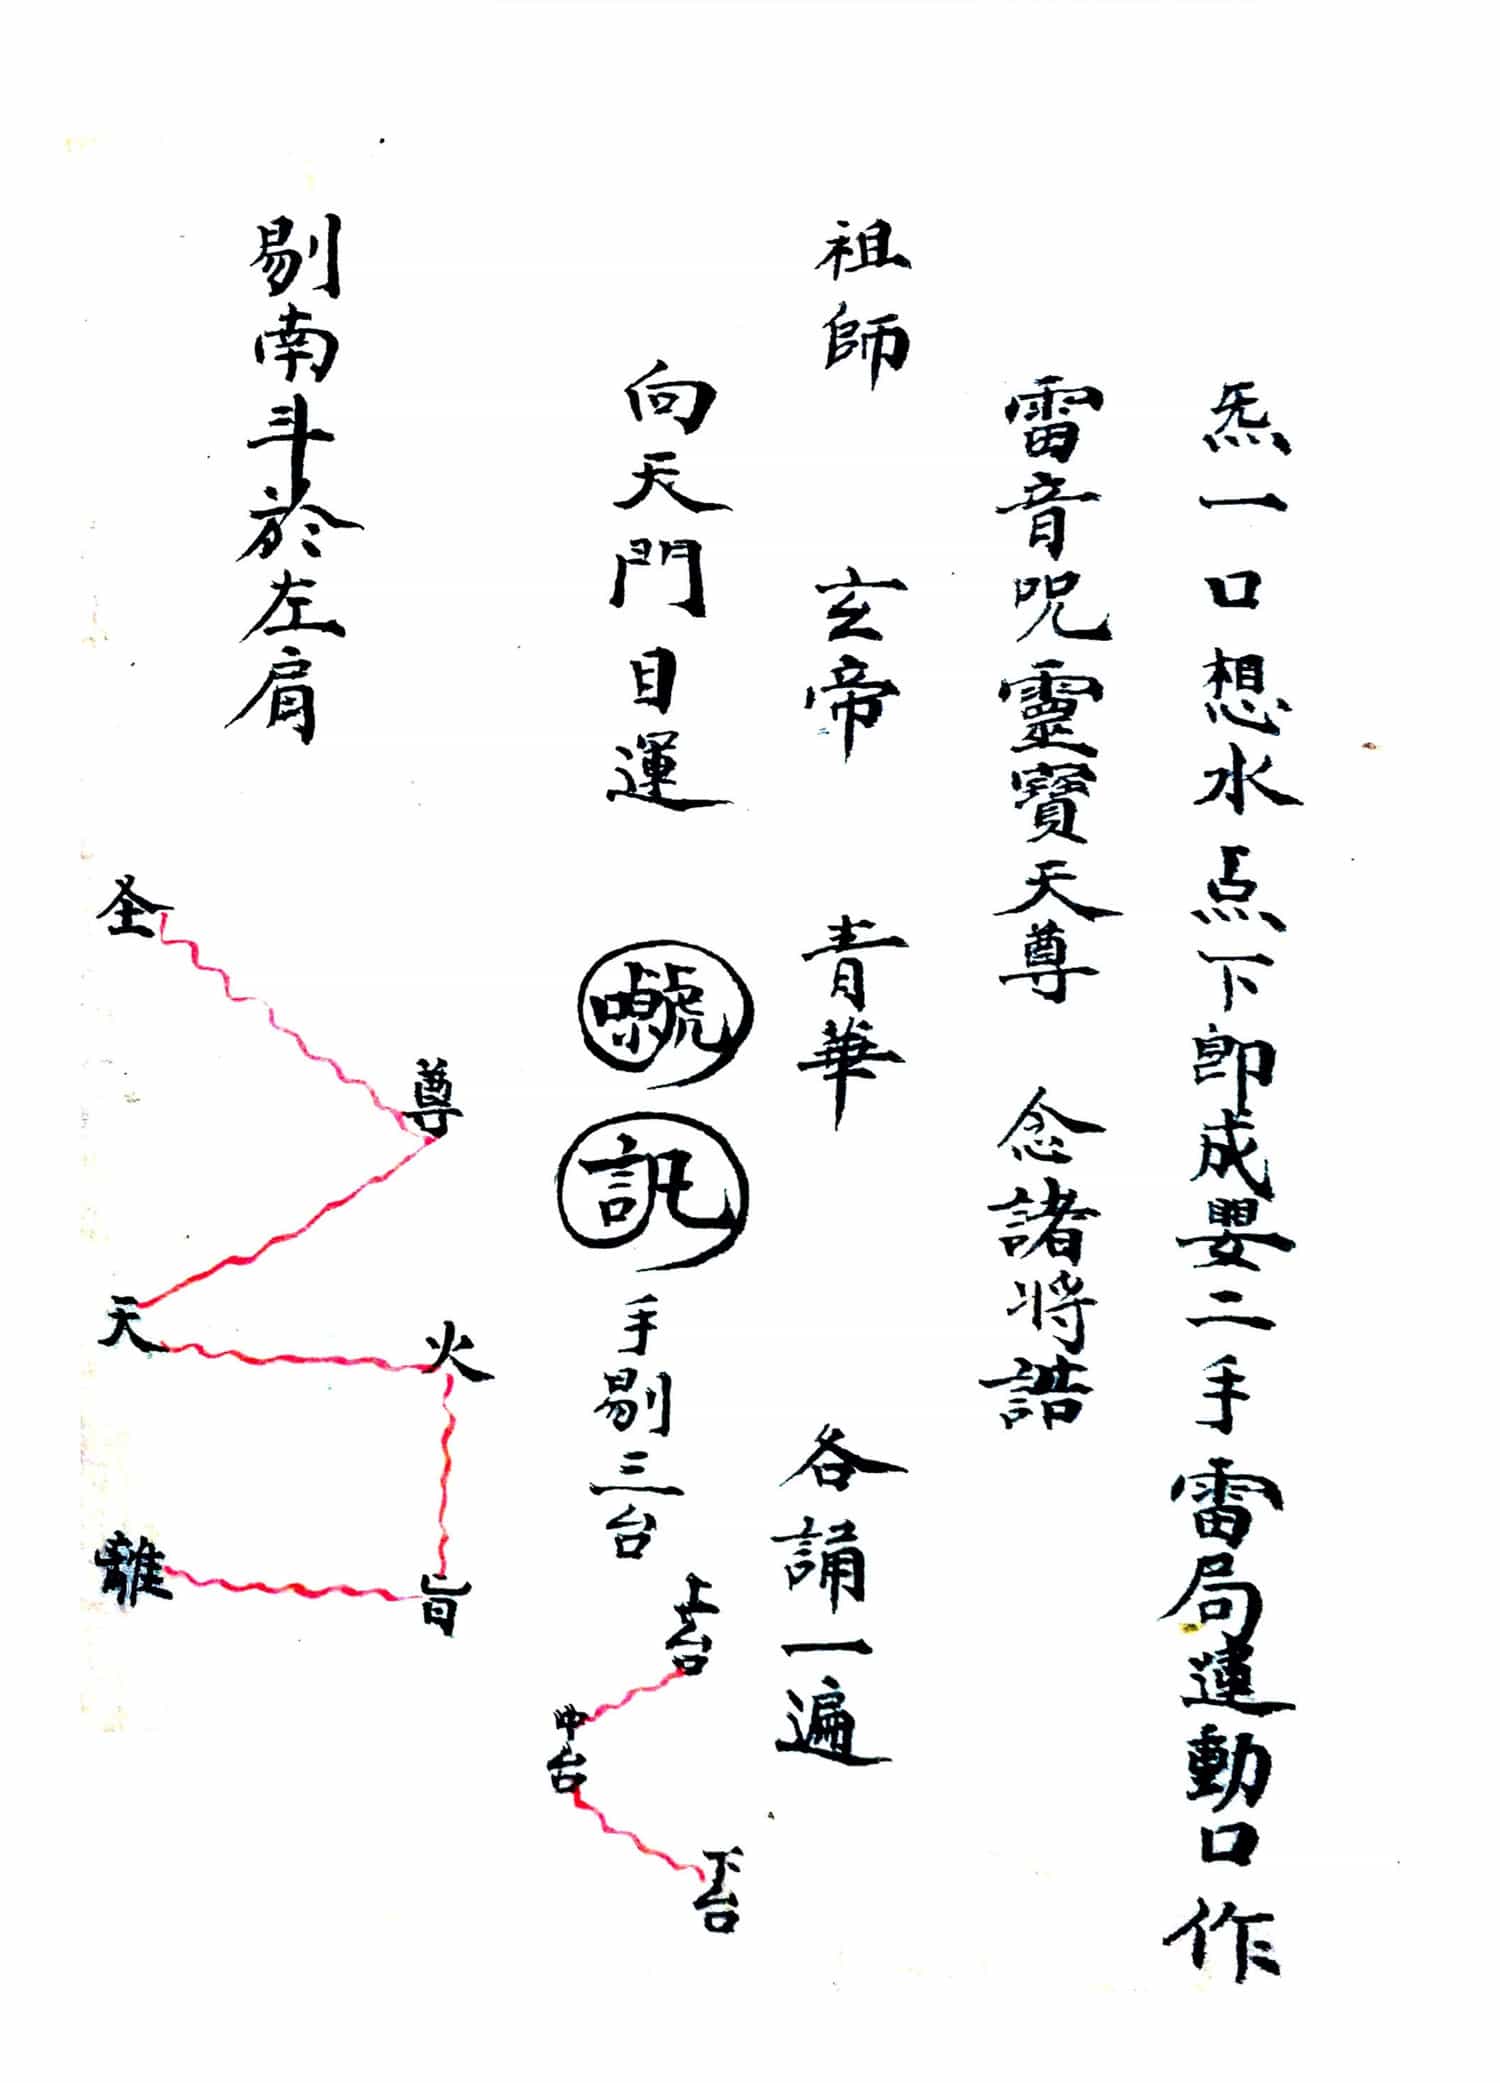 炁一口想水点下即成嬰二手雷局運動口作
雷音咒靈寶天尊 念諸將誥
祖師 玄帝 青華 各誦一遍
向天門目運
手剔三台
上台
中台
下台
剔南斗於左肩
尊
火
旨
圣
天